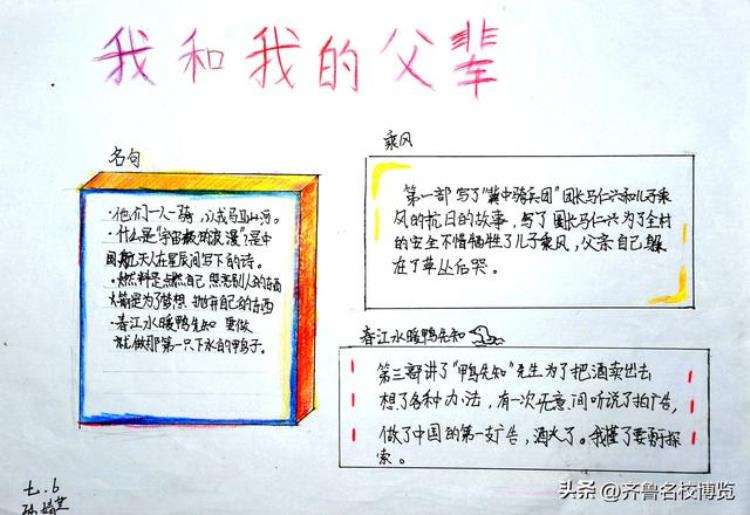 我和我的父辈
名句
·他们一人一骑，以我马战山河。
·什么是"宇宙级的浪漫"？是中
国航天人在星辰间写下的诗。
·燃料是点燃自己 照亮别人的东西
火箭是为了梦想 抛弃自己的东西
·春江水暖鸭先知 要做
就做那第一只下水的鸭子。
乘风
第一部 写了"冀中骑兵团"团长马仁兴和儿子乘
风的抗日的故事，写了团长马仁兴为了全村
的安全不惜牺牲了儿子乘风，父亲自己躲
在了草丛后哭。
春江水暖鸭先知
第三部讲了"鸭先知"先生为了把酒卖出去
想了各种办法，有一次无意间听说了拍广告，
做了中国的第一支广告，酒火了。我懂了要勇于探
索。
七.6
头条@齐鲁名校博览